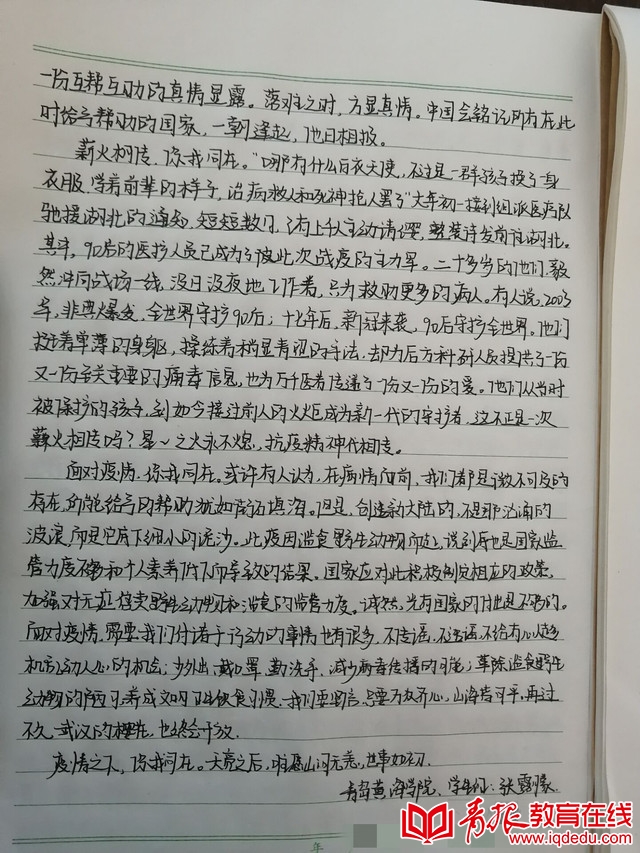 一份互帮互助的真情显露。落难之时，方显真情。中国会铭记所有在此
时给予帮助的国家，一朝逢起，他日相报。
薪火相传，你我同在。“哪有什么白衣天使，不过是一群孩子换了一身
衣服，学着前辈的样子，治病救人和死神抢人罢了”大年初一接到组派医疗队
驰援湖北的通知，短短数日，已有上千人主动请缨，整装待发前往湖北。
其中，90后的医护人员已成为了彼此次战疫的主力军。二十多岁的他们，毅
然冲向战场一线，没日没夜地工作着，只为救助更多的病人。有人说，2003
年，非典爆发，全世界守护90后；十七年后，新冠来袭，90后守护全世界。他们
挺着单薄的身躯，操练着稍显青涩的手法，却为后方科研人员提供了一份
又一份至关重要的病毒信息，也为万千医者传递了一份又一份的爱。他们从当时
被保护的孩子，到如今接过前人的火炬成为新一代的守护者，这不正是一次
薪火相传吗？星星之火永不熄，抗疫精神代相传。
面对疫情，你我同在。或许有人认为，在病情面前，我们都是微不可及的
存在，所能给予的帮助犹如碎石填海。但是，创造新大陆的，不是那汹涌的
波浪，而是它底下细小的流沙。此疫因滥食野生动物而起，说到底也是国家监
管力度不够和个人素养低下而导致的结果。国家应对此积极制定相应的政策，
加强对无证售卖野生动物和滥食的监管力度。诚然，光有国家的付出是不够的。
面对疫情，需要我们付诸于行动的事情也有很多，不传谣，不造谣，不给有心人趁
机动人心的机会；少外出，戴口罩，勤洗手，减少病毒传播的可能；革除滥食野生
动物的陋习，养成文明卫生饮食习惯。我们要坚信，只要万众齐心，山海皆可平。再过
不久，武汉的樱花，也终会开放。
疫情之下，你我同在。天亮之后，唯愿山河无恙，世事如初。
青岛黄海学院，学生们：张露
青报教育在线
www.iqdedu.com
年